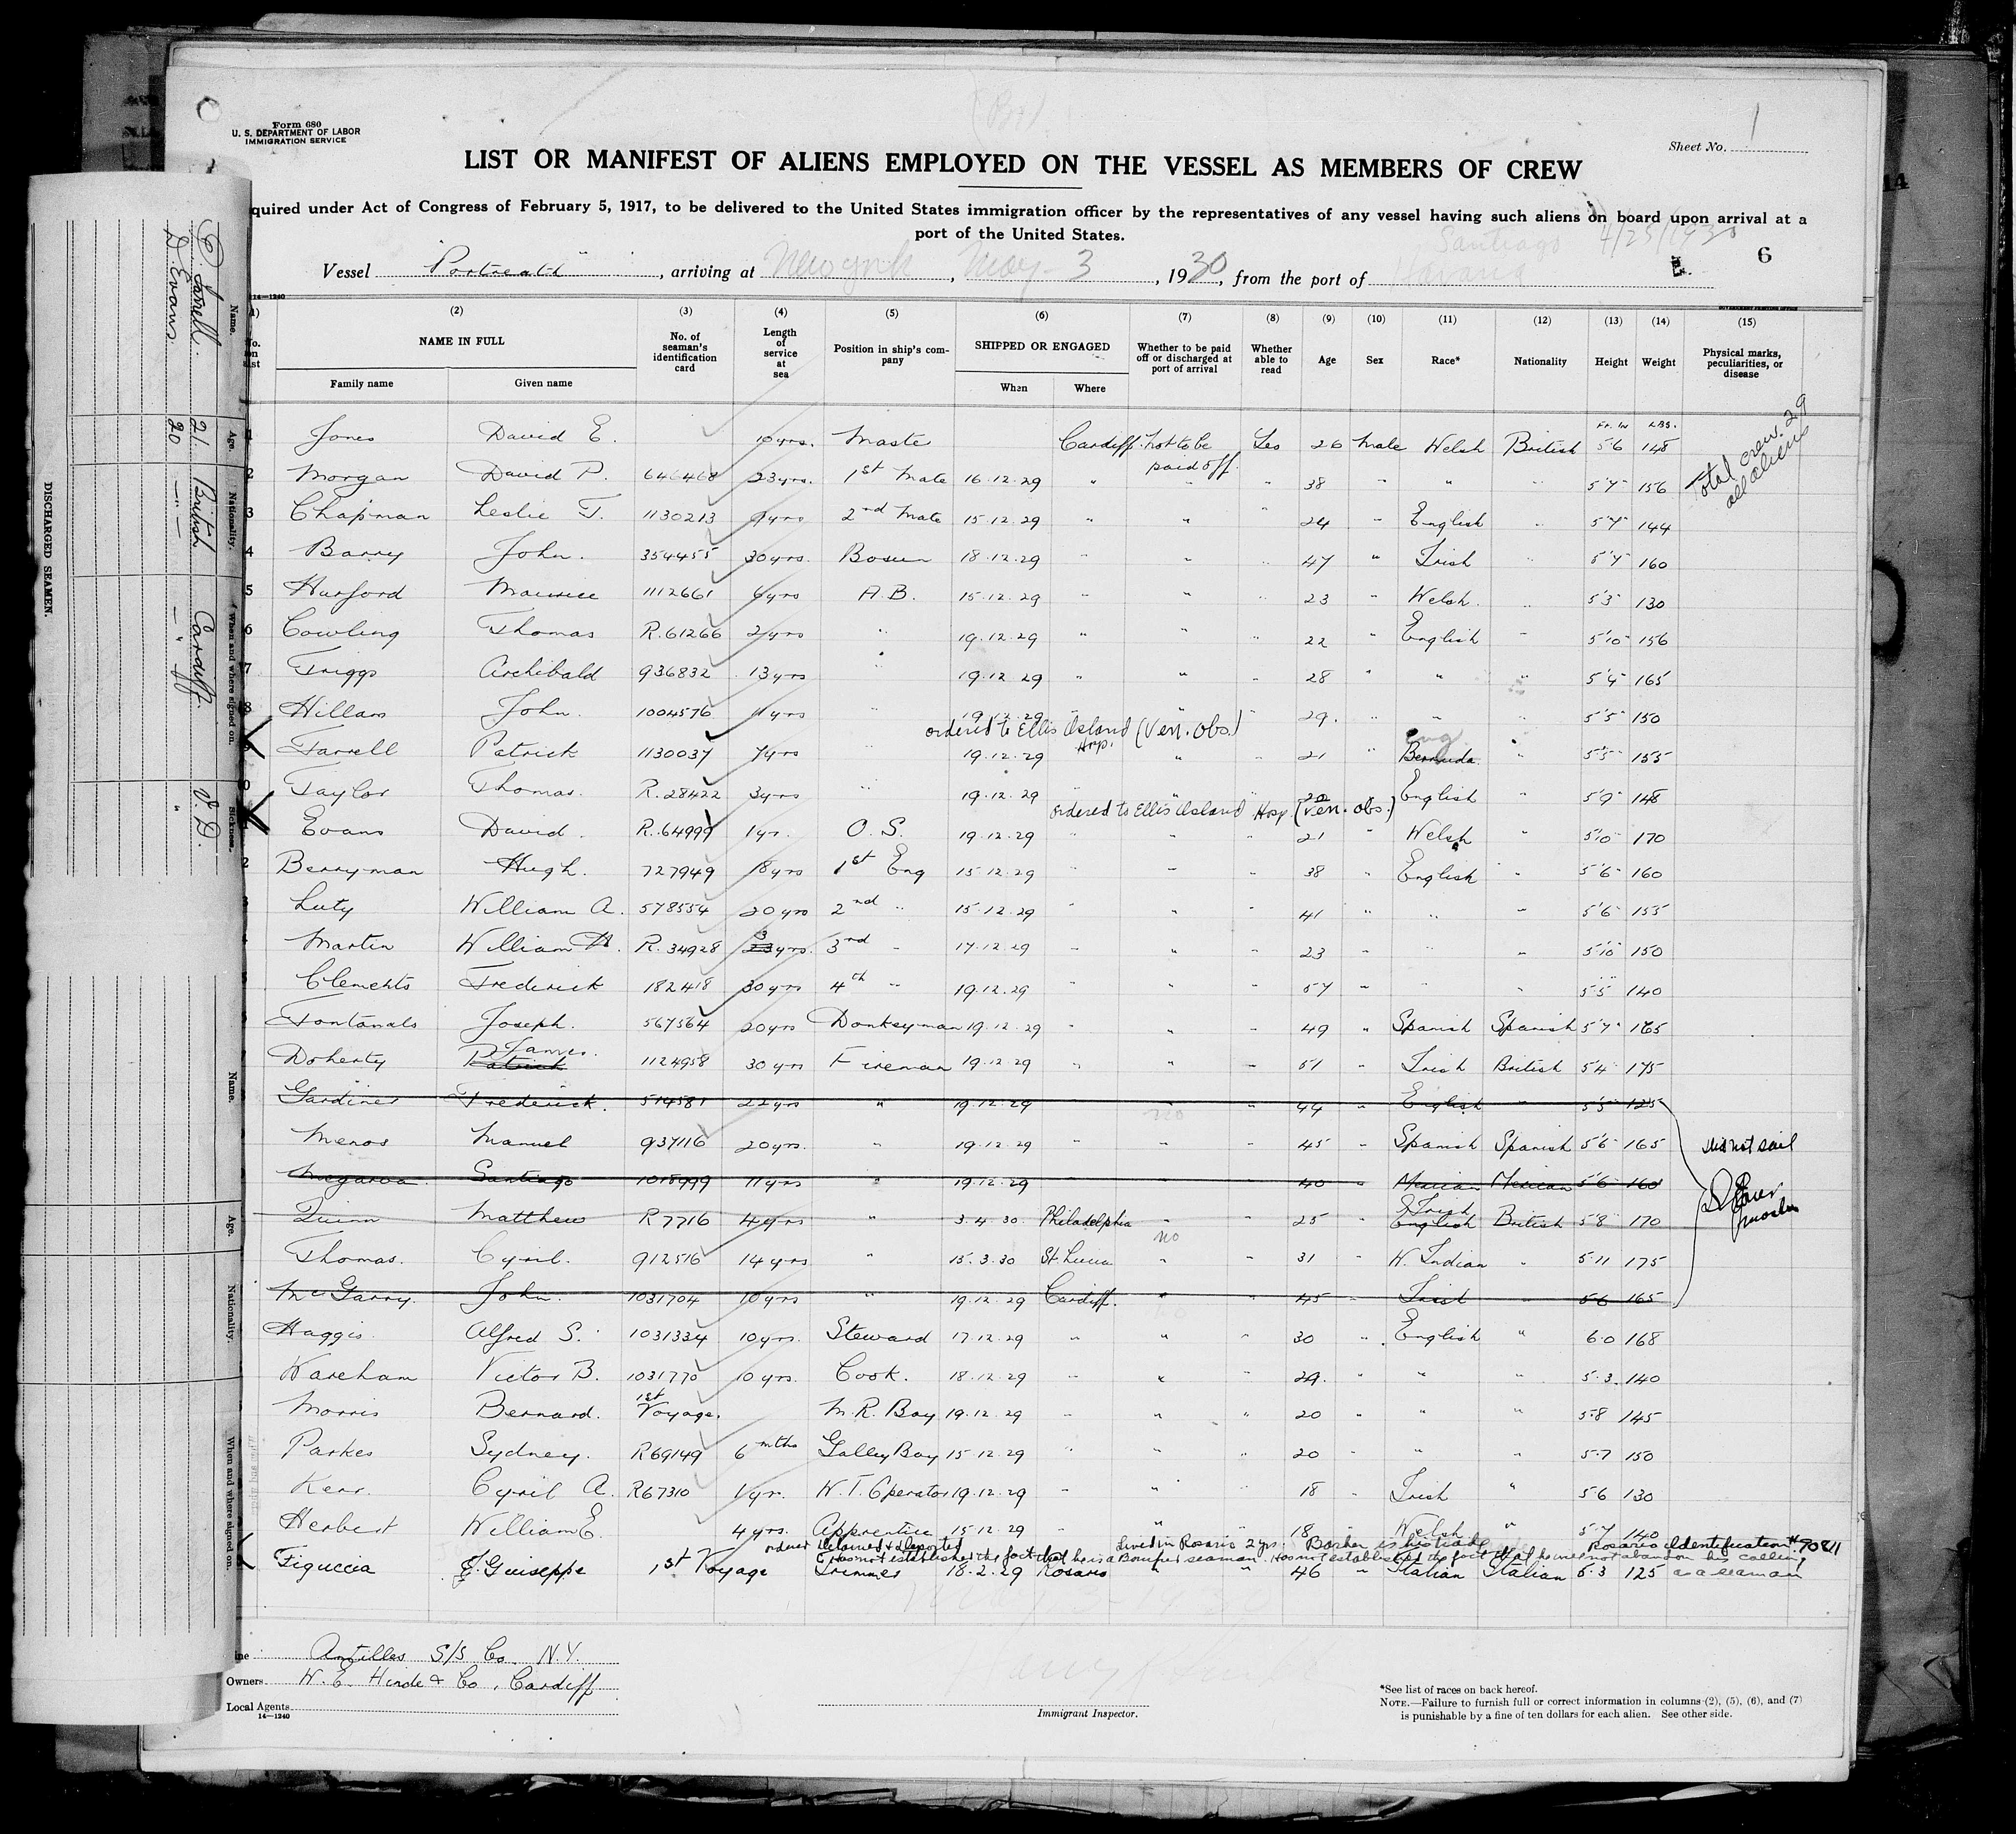 Form 680
U. S. DEPARTMENT OF LABOR
IMMIGRATION SERVICE
Sheet No. 1
LIST OR MANIFEST OF ALIENS EMPLOYED ON THE VESSEL AS MEMBERS OF CREW
quired under Act of Congress of February 5, 1917, to be delivered to the United States immigration officer by the representatives of any vessel having such aliens on board upon arrival at a
port of the United States.
Santiago 4/25/1930
6
Vessel "Portreath", arriving at New York, May 3, 1930, from the port of Havana
14—1240
(2) (3) (4) (5) (6) (7) (8) (9) (10) (11) (12) (13) (14) (15)
NAME IN FULL
Family name Given name
No. of seaman's identification card
Length of service at sea
Position in ship's company
SHIPPED OR ENGAGED
When Where
Whether to be paid off or discharged at port of arrival
Whether able to read
Age Sex Race* Nationality Height Weight
Physical marks, peculiarities, or disease
Total crew 29
all aliens
1 Jones David E. 10 yrs. Maste Cardiff. Not to be paid off. Yes 26 Male Welsh British 5'6 148
2 Morgan David P. 646468 23 yrs. 1st Mate 16.12.29 " " " 38 " " " 5'7" 156
3 Chapman Leslie T. 1130213 9 yrs 2nd Mate 15.12.29 " " " 24 " English " 5'7" 144
4 Barry John. 354455 30 yrs. Bosun 18.12.29 " " " 47 " Irish " 5'7 160
5 Harford Maurice 1112661 6 yrs A.B. 15.12.29 " " " 23 " Welsh. " 5'3" 130
6 Cowling Thomas R.61266 2 yrs " 19.12.29 " " " 22 " English " 5'10" 156
7 Triggs Archibald 936832 13 yrs " 19.12.29 " " " 28 " " " 5'4" 165
8 Hillam John. 1004576 yrs " 19.12.29 29. " " " 5'5" 150
ordered to Ellis Island Hosp. (Ven. Obs.)
Farrell Patrick 1130037 7 yrs " 19.12.29 " " 21 " Bermuda Eng " 5'5" 155
Taylor Thomas. R.28422 3 yrs " 19.12.29 20 English " 5'9" 148
ordered to Ellis Island Hosp. (Ven. Obs.)
Evans David. R.64999 1 yr. O. S. 19.12.29 " " " 21 " Welsh " 5'10" 170
2 Berryman Hugh. 727949 18 yrs 1st Eng 15.12.29 " " " 38 " English " 5'6" 160
Luty William A. 578554 20 yrs 2nd " 15.12.29 " " " 41 " " " 5'6" 155
Martin William R. 34928 3 yrs. 3rd " 17.12.29 " " " 23 " " " 5'10" 150
Clements Frederick 182418 30 yrs 4th " 19.12.29 " " " 57 " " " 5'5" 140
Fontanals Joseph. 567564 20 yrs Donkeyman 19.12.29 " " " 49 " Spanish Spanish 5'7" 165
Doherty Patrick James. 1124958 30 yrs Fireman 19.12.29 " " " 51 " Irish British 5'4" 175
Gardiner Frederick. 514581 22 yrs " 19.12.29 " no " 44 " English " 5'5" 125
Menos Manuel 937116 20 yrs. " 19.12.29 " " " 45 " Spanish Spanish 5'6" 165
Santiago 1018999 11 yrs " 19.12.29 40 " Mexican Mexican 5'6" 160
Quinn Matthew R7716 4 yrs " 3.4.30 Philadelphia " " 25 " English Irish British 5'8" 170
Thomas. Cyril. 912516 14 yrs " 15.3.30 St. Lucia no " " 31 " W. Indian " 5.11 175
McGarry. John. 1031704 10 yrs " 19.12.29 Cardiff. " " 45 " Irish 5 6 165
did not sail
Haggis Alfred S. 1031334 10 yrs. Steward 17.12.29 " " " 30 " English " 6.0 168
Wareham Victor B. 1031770 10 yrs. Cook. 18.12.29 " " " 29. " " " 5.3. 140
Morris Bernard. 1st Voyage. M.R. Boy 19.12.29 " " " 20 " " " 5.8 145
Parkes Sydney. R69149 6 mths Galley Boy 15.12.29 " " " 20 " " " 5.7 150
Kerr. Cyril A. R67310 1 yr. W.T. Operator 19.12.29 " " " 18 " Irish " 5 6 130
Herbert William E. 4 yrs. Apprentice 15.12.29 " " " 18 " Welsh " 5.7 140
ordered detained & deported lived in Rosario 2 yrs. Barber is his trade Rosario Identification #70811
Has not established the fact that he is a bonified seaman. Has not established the fact that he will not abandon his calling as a seaman
Figuccia Guiseppe 1st Voyage Trimmer 18.2.29 Rosario " " 46 " Italian Italian 5.3 125
ne Antilles S/S Co. N.Y.
Owners W. E. Hinde & Co, Cardiff
Local Agents
14—1240
Immigrant Inspector.
*See list of races on back hereof.
NOTE.—Failure to furnish full or correct information in columns (2), (5), (6), and (7)
is punishable by a fine of ten dollars for each alien. See other side.
DISCHARGED SEAMEN.
Name. Age. Nationality. When and where signed on. Sickness.
P Farrell. 21 British Cardiff. V.D.
D Evans. 20 " " "
Name. Age. Nationality. When and where signed on.